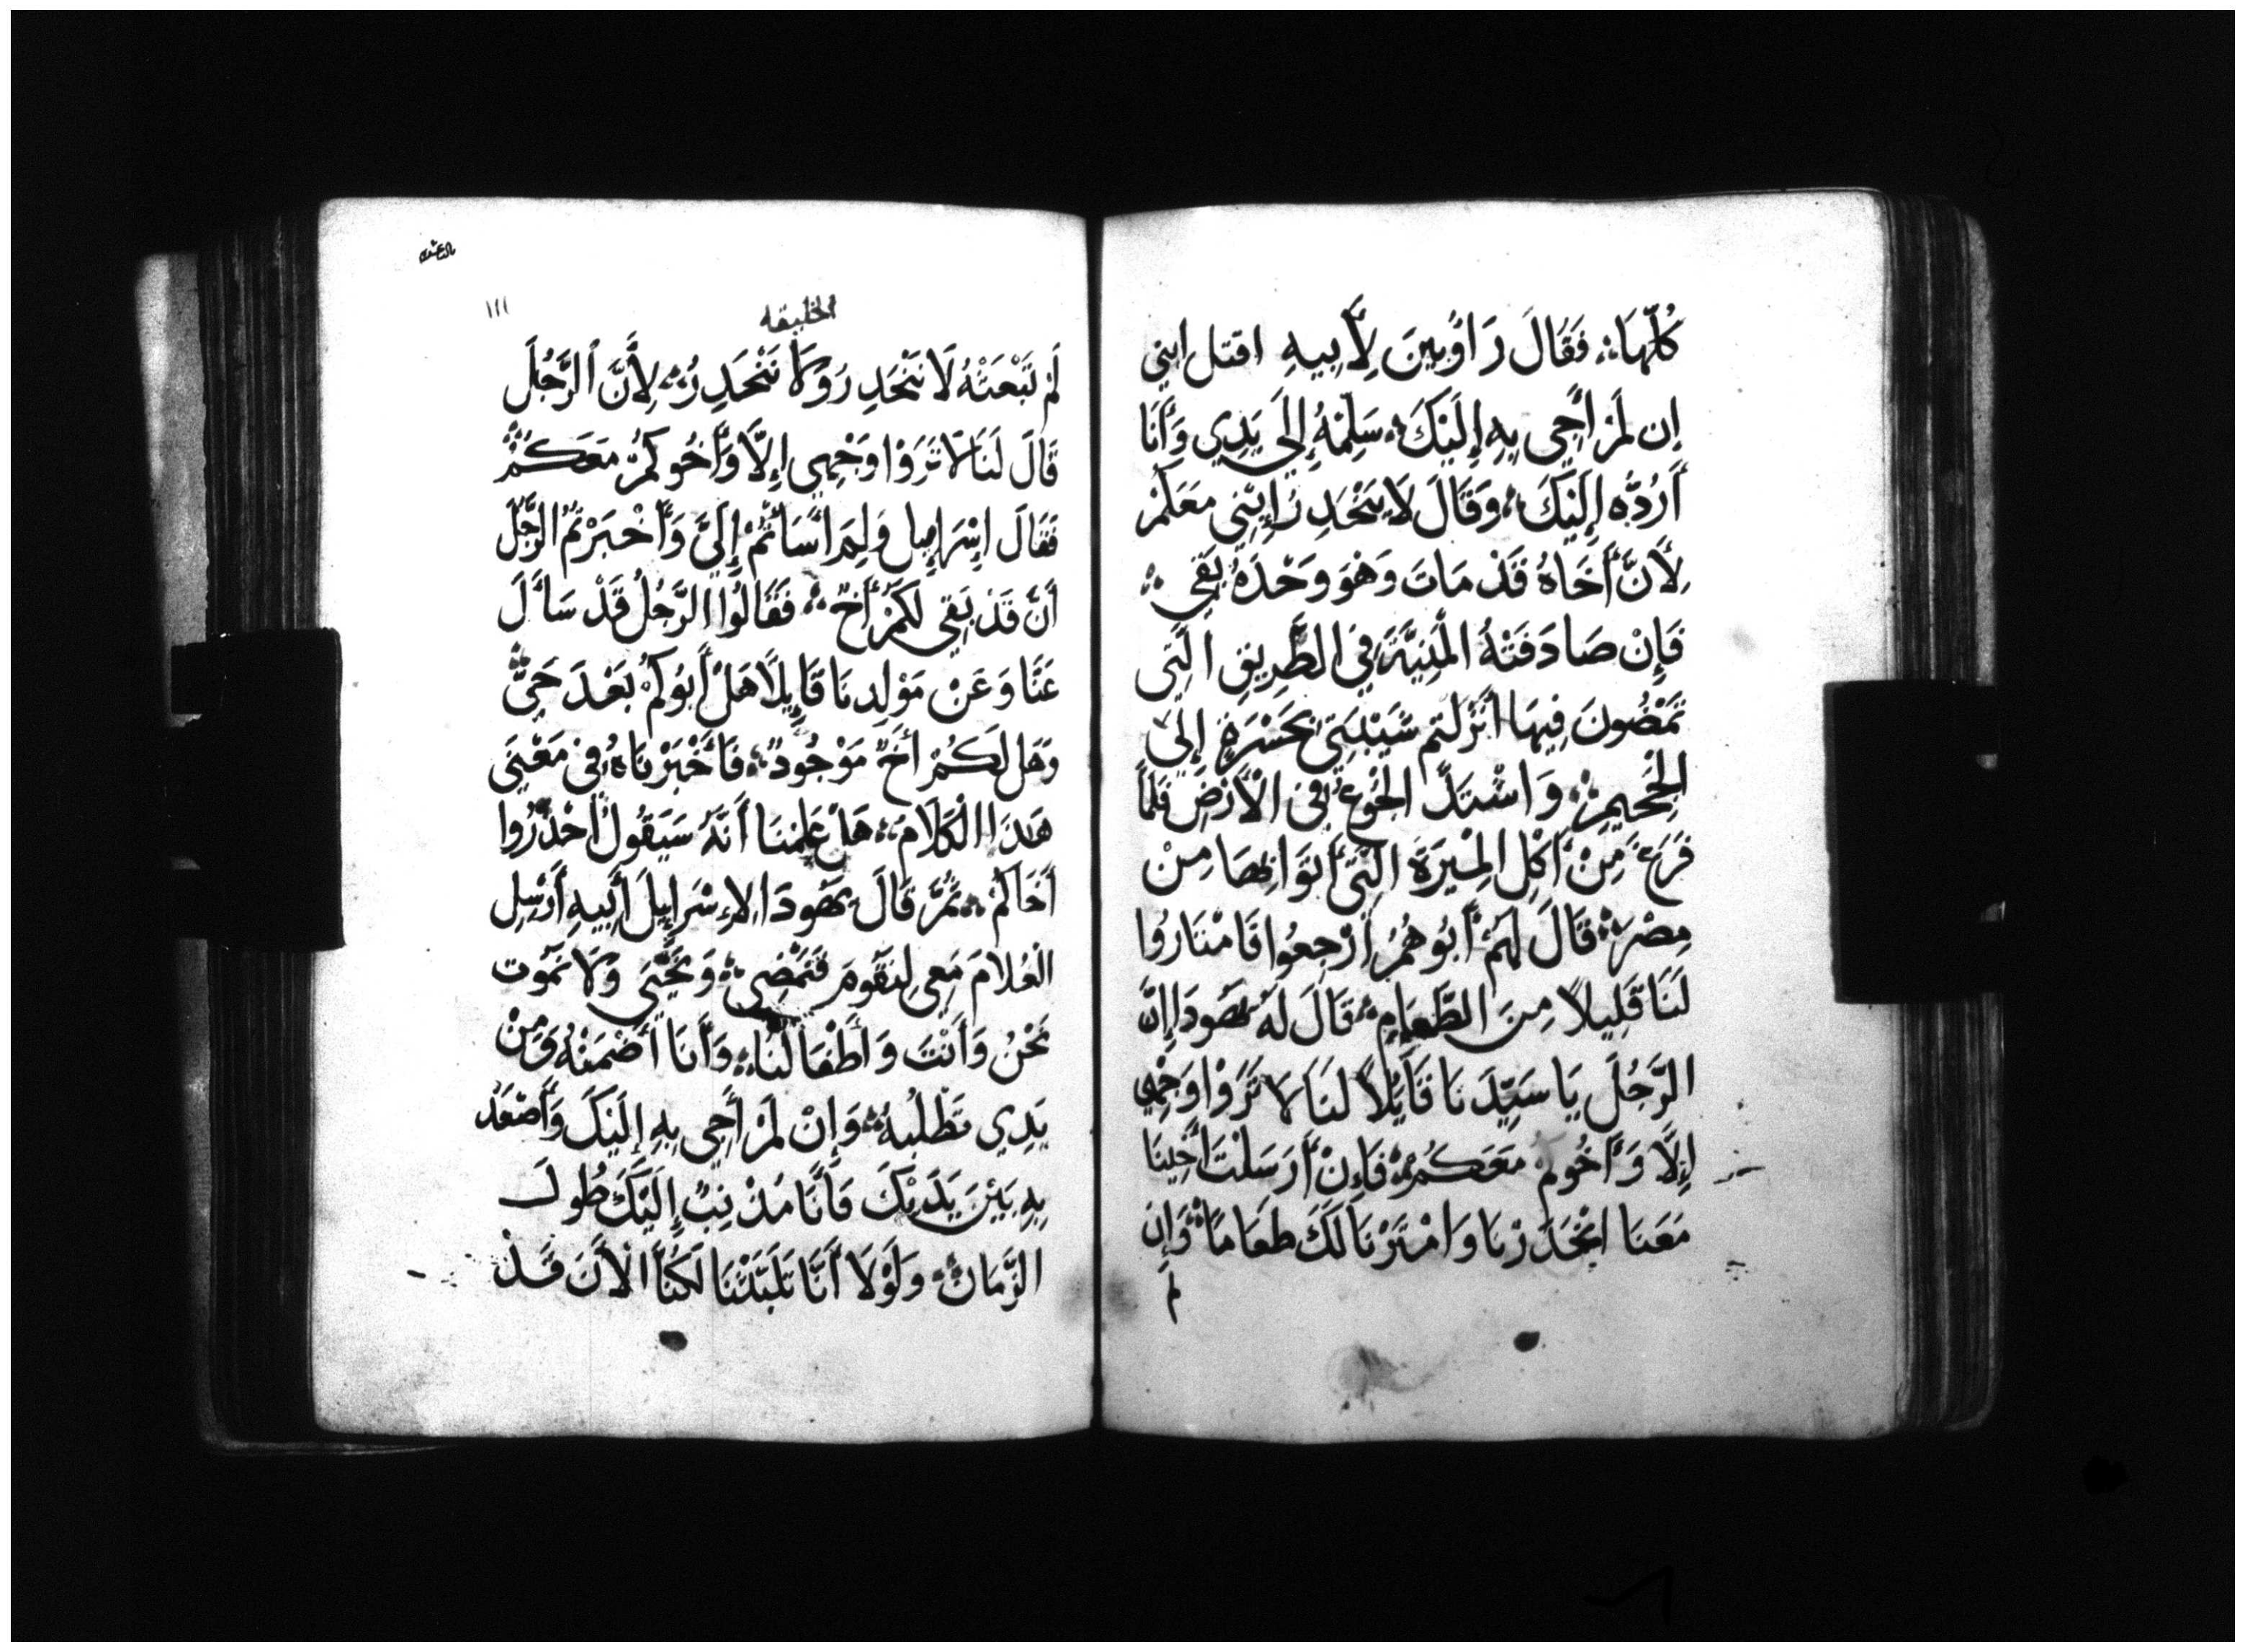 كُلَّهَا فَقَالَ رَاوُبِينَ لِأَبِيهِ اقتل ابني
إن لَمْ أَجِي بِهِ إِلَيْكَ سَلِّمْهُ إِلَى يَدِي وَأَنَا
أَرُدُّه إِلَيْكَ وَقَالَ لَا يَنْحَدِرُ إِبْنِي مَعَكُمْ
لِأَنَّ أَخَاهُ قَدْ مَاتَ وَهُوَ وَحْدَهُ بَقِي
فَإِنْ صَادَفَتْهُ الْمَنِيَّةُ فِي الطَّرِيقِ الَّتِي
تَمْضُونَ فِيهَا أَنْزَلتم شَيْبَتِي بِحَسْرَةٍ إِلَى
الْجَحِيمِ وَاشْتَدَّ الْجُوعُ فِي الْأَرْضِ فَلَمَّا
فَرَغَ مِنْ أَكْلِ الْمِيْرَةِ الَّتِي أَتَوْا بِهَا مِنْ
مِصْرَ قَالَ لَهُمْ أَبُوهُمْ أَرْجِعُوا فَامْتَارُوا
لَنَا قَلِيلًا مِنَ الطَّعَامِ قَالَ لَهُ يَهُودَا إِنَّ
الرَّجُلَ يَا سَيِّدَنَا قَايِلًا لَنَا لَا تَرَوْا وَجْهِي
إِلَّا وَأَخُوكُمْ مَعَكُمْ فَإِنْ أَرْسَلْتَ أَخِينَا
مَعَنَا انْحَدَرْنَا وَامْتَرْنَا لَكَ طَعَامًا وَإِن
لم
الخليقه
١١١
لَمْ تَبْعَثْهُ لَا نَنْحَدِر وَلَا نَنْحَدِرُ لِأَنَّ الرَّجُلَ
قَالَ لَنَا لَا تَرَوْا وَجْهِي إِلَّا وَأَخُوكُمْ مَعَكُمْ
فَقَالَ إِسْرَايِيل وَلِمَ أَسَأْتُمْ إِلَيَّ وَأَخْبَرْتُمُ الرَّجُلَ
أَنْ قَدْ بَقِي لَكُمْ أَخٌ فَقَالُوا الرَّجُلُ قَدْ سَأَلَ
عَنَّا وَعَنْ مَوْلِدِنَا قَايِلًا هَلْ أَبُوكُمْ بَعْدَ حَيٌّ
وَهَل لَكُمْ أَخٌ مَوْجُودٌ فَأَخْبَرْنَاهُ فِي مَعْنَى
هَذَا الْكَلَامِ هَلْ عَلِمْنَا أَنَّهُ سَيَقُولُ أَحْدُرُوا
أَخَاكُمْ ثُمَّ قَالَ يَهُودَا لِإِسْرَايِيلَ أَبِيهِ أَرْسِل
الْغُلَامَ مَعِي لِنَقُومَ فَنَمْضِي وَنَحْيَى وَلَا نَمُوت
نَحْنُ وَأَنْتَ وَأَطْفَالُنَا وَأَنَا أَضْمَنْهُ وَمِنْ
يَدِي تَطْلُبُهُ وَإِنْ لَمْ أَجِي بِهِ إِلَيْكَ وَأَصْعَدُ
بِهِ بَيْنَ يَدَيْكَ فَأَنَا مُذْنِبٌ إِلَيْكَ طُولَ
الزَّمَانِ وَلَوْلَا أَنَّا تَلَبَّثْنَا لَكُنَّا الْأَنَ قَدْ